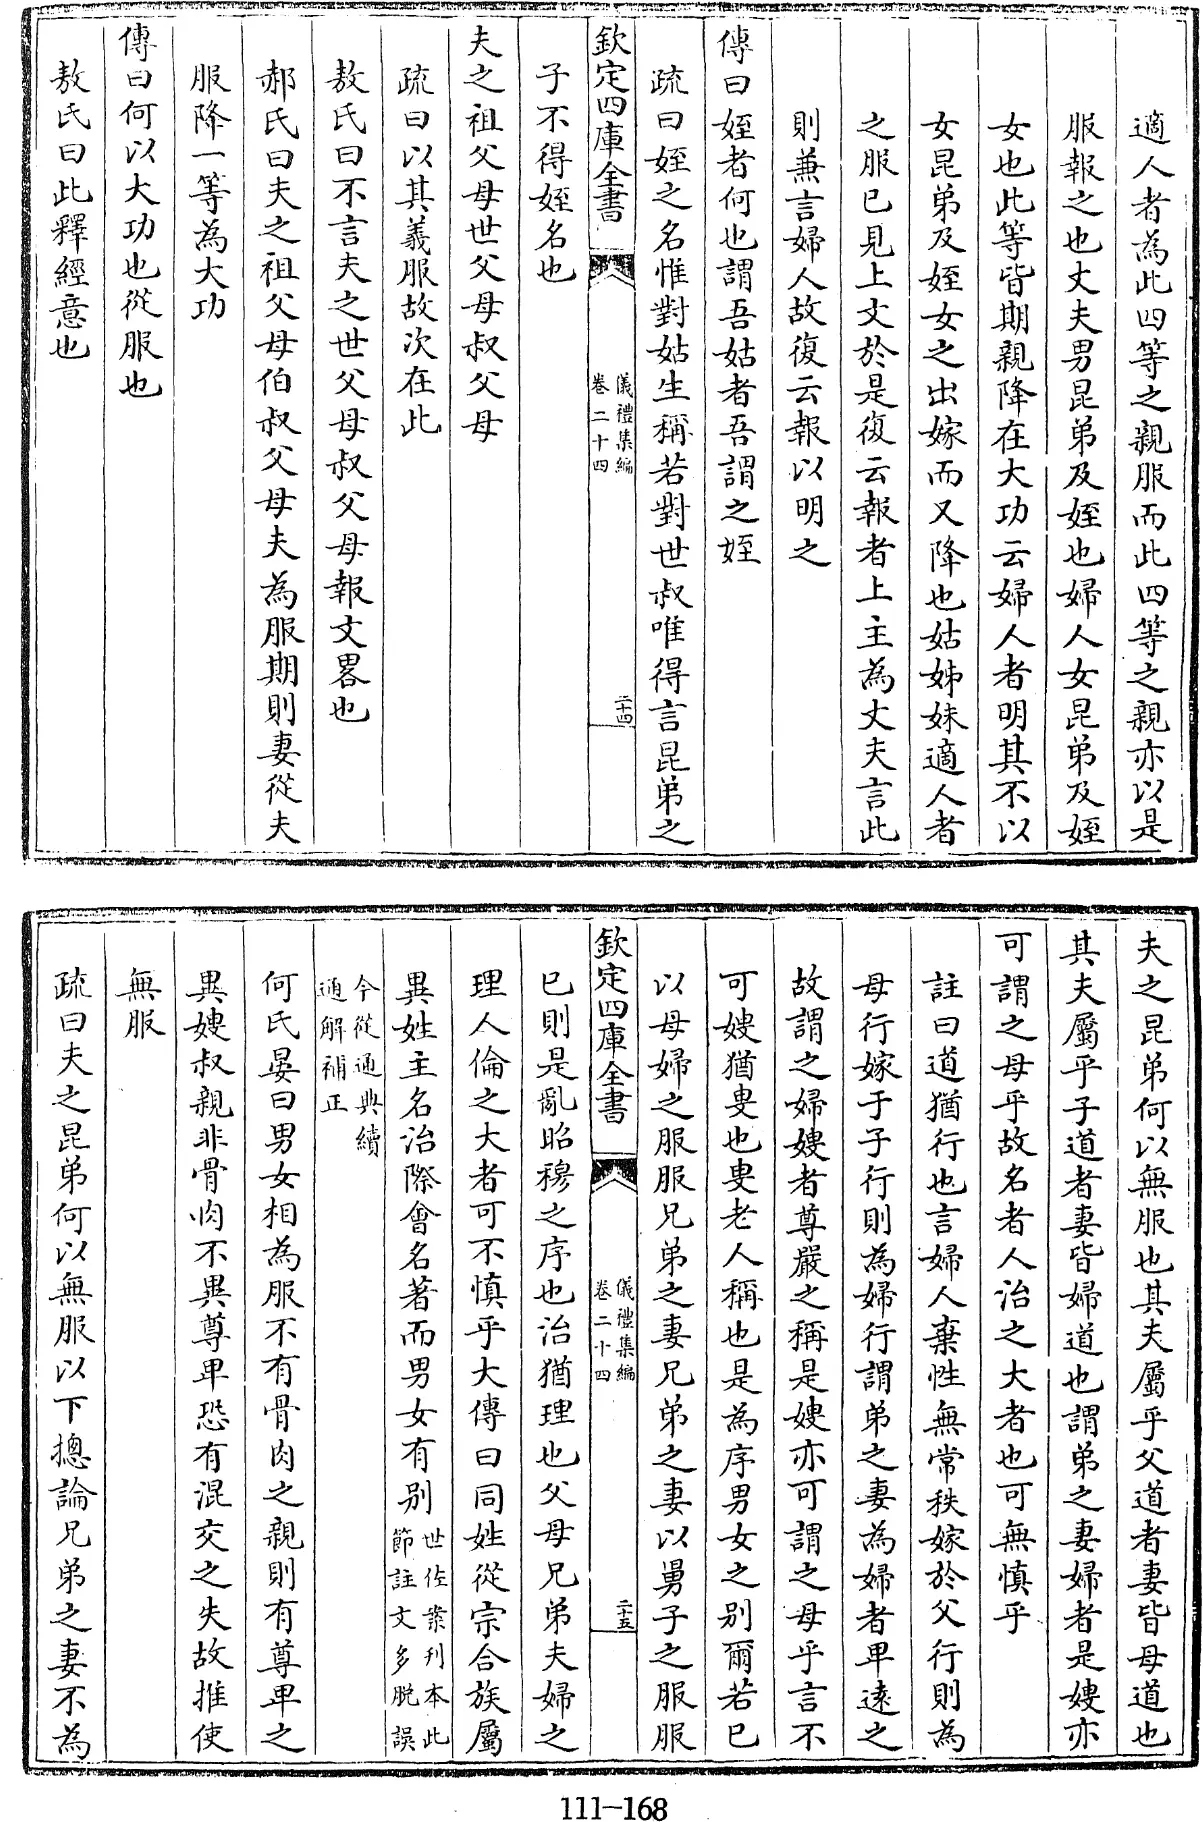 適人者為此四等之親服而此四等之親亦以是
服報之也丈夫男昆弟及姪也婦人女昆弟及姪
女也此等皆期親降在大功云婦人者明其不以
女昆弟及姪女之出嫁而又降也姑姊妹適人者
之服已見上文於是復云報者上主為丈夫言此
則兼言婦人故復云報以明之
傳曰姪者何也謂吾姑者吾謂之姪
疏曰姪之名惟對姑生稱若對世叔唯得言昆弟之
欽定四庫全書
儀禮集編
卷二十四
二十四
子不得姪名也
夫之祖父母世父母叔父母
疏曰以其義服故次在此
敖氏曰不言夫之世父母叔父母報文畧也
郝氏曰夫之祖父母伯叔父母夫為服期則妻從夫
服降一等為大功
傳曰何以大功也從服也
敖氏曰此釋經意也
夫之昆弟何以無服也其夫屬乎父道者妻皆母道也
其夫屬乎子道者妻皆婦道也謂弟之妻婦者是嫂亦
可謂之母乎故名者人治之大者也可無慎乎
註曰道猶行也言婦人棄性無常秩嫁於父行則為
母行嫁于子行則為婦行謂弟之妻為婦者卑遠之
故謂之婦嫂者尊嚴之稱是嫂亦可謂之母乎言不
可嫂猶叟也叟老人稱也是為序男女之別爾若已
以母婦之服服兄弟之妻兄弟之妻以舅子之服服
欽定四庫全書
儀禮集編
卷二十四
二十五
已則是亂昭穆之序也治猶理也父母兄弟夫婦之
理人倫之大者可不慎乎大傳曰同姓從宗合族屬
異姓主名治際會名著而男女有別
世佐案刋本此
節註文多脫誤
今從通典續
通解補正
何氏晏曰男女相為服不有骨肉之親則有尊卑之
異嫂叔親非骨肉不異尊卑恐有混交之失故推使
無服
疏曰夫之昆弟何以無服以下摠論兄弟之妻不為
111-168